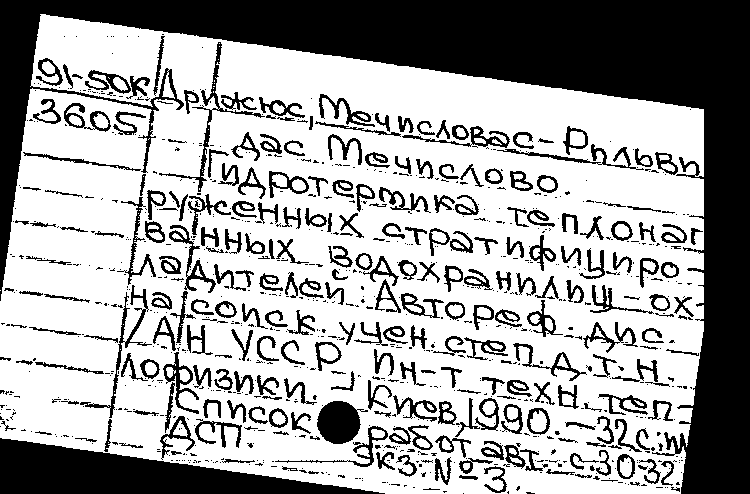 91-50К Дрижюс, Мечисловас-Рильви
3605
дас Мечислово.
Гидротермика теплонаг
руженных стратифициро-
ванных водохранилищ-ох-
ладителей: Автореф. дис.
на соиск. учен. степ. д.т.н.
/АН УССР, Ин-т техн. теп-
лофизики. - Киев, 1990. - 32 с.;
Список работ авт.: с.30-32
ДСП. Экз. № 3.